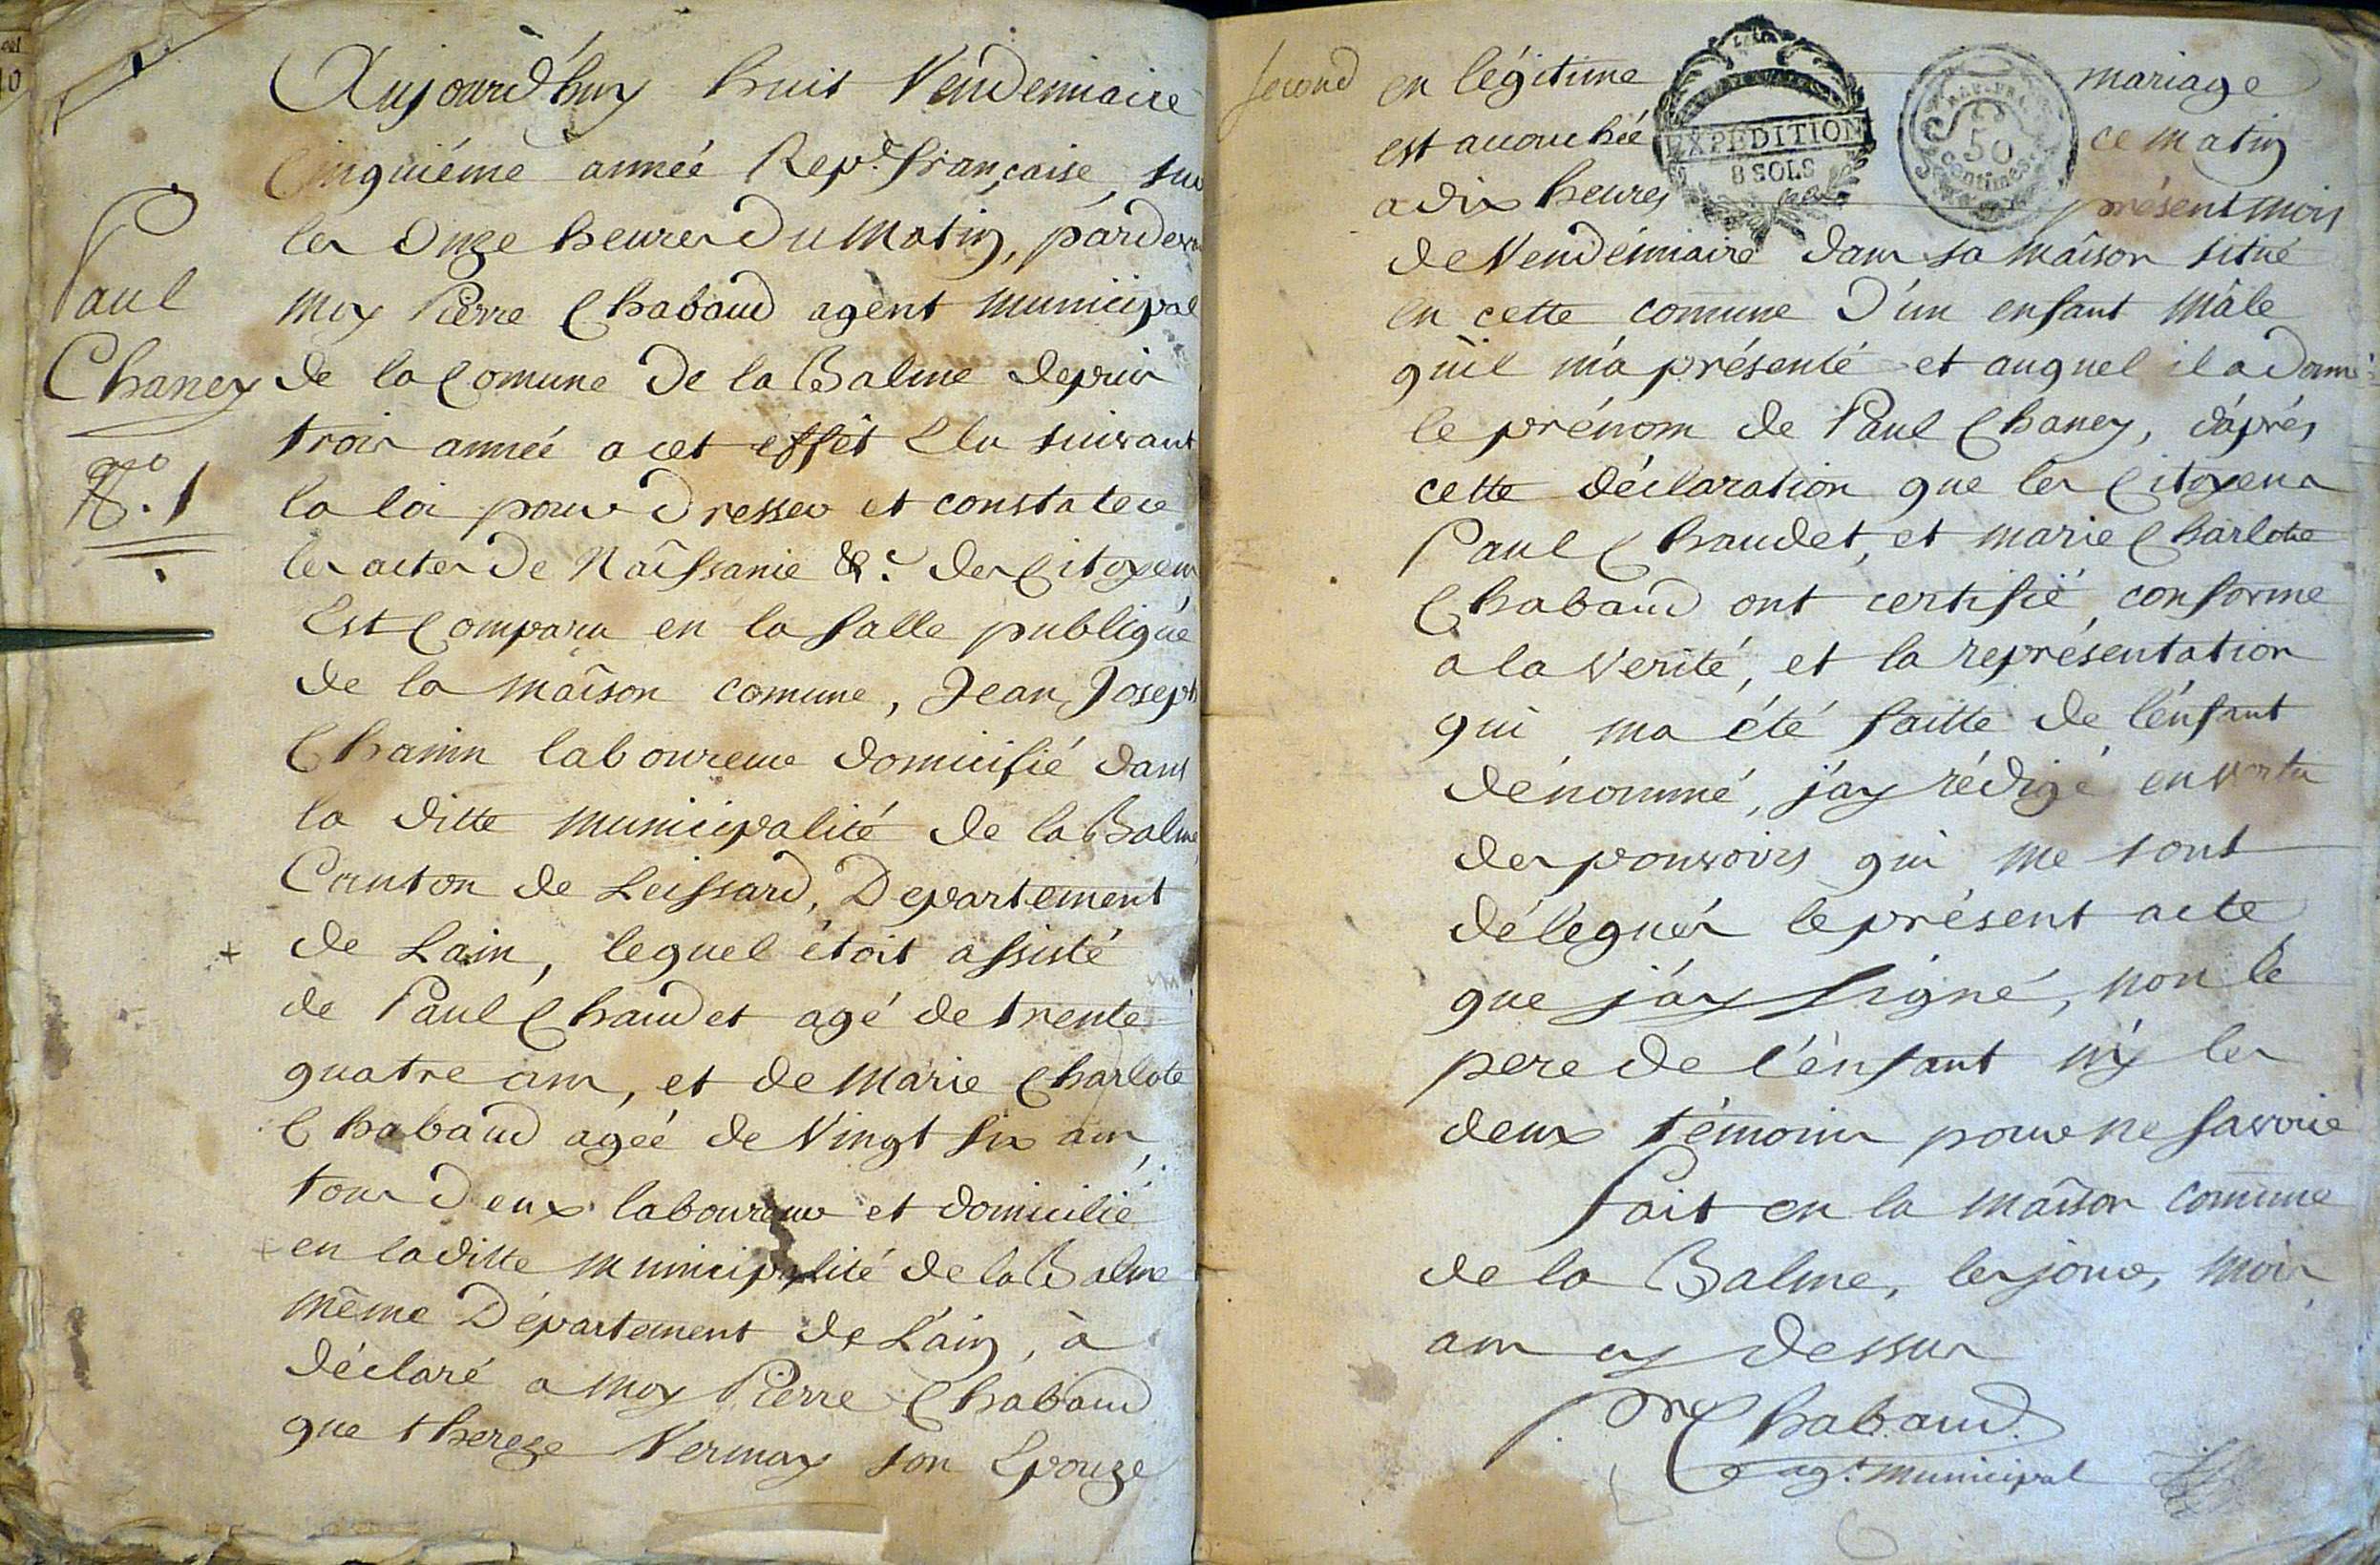 Paul
Chaney
N.o 1
Aujourd'huy huit Vendemiaire
Cinquiéme année Rep.e française, sur
les Onze heures du Matin, pardevn
moy Pierre Chabaud agent Municipal
de la Comune de la Balme depuis
trois année a cet effêt Elu suivant
la loi pour dresser et constater
les actes de Naîssance &.c des Citoyens
Est Comparu en la salle publique
de la maîson comune, Jean Joseph
Chanin laboureur domicifié dans
la ditte municipalité de la Balme
Canton de Leissard, Departement
de Lain, lequel étoit assisté
de Paul Chaudet agé de trente
quatre ans, et de Marie Charlote
Chabaud agéé de Vingt six ans,
tous deux laboureur et domicilié
en laditte municipalité de la Balme
même Département de L'ain, à
déclaré a moy Pierre Chabaud
que thereze Vermay son Epouze
second en légitime mariage
EXPEDITION
8 SOLS
50
Centimes
est accouchéé ce matin
a dix heures présent mois
de Vendémiaire dans sa maîson situé
en cette comune D'un enfant Mâle
qu'il m'a présenté et auquel il a donné
le prénom de Paul Chaney, d'aprés
cette déclaration que les Citoyens
Paul Chaudet, et marie Charlote
Chabaud ont certifié conforme
a la Verité, et la représentation
qui ma été faitte de l'énfant
dénommé, j'ay rédigé en vertu
des pouvoirs qui me sont
délégués le présent acte
que j'ay signé, non le
pere de l'énfant n'y les
deux témoins pour ne savoir
fait en la maîson comune
de la Balme, les jour, mois
ans cy dessus
P.re Chabaud
ag.t municipal